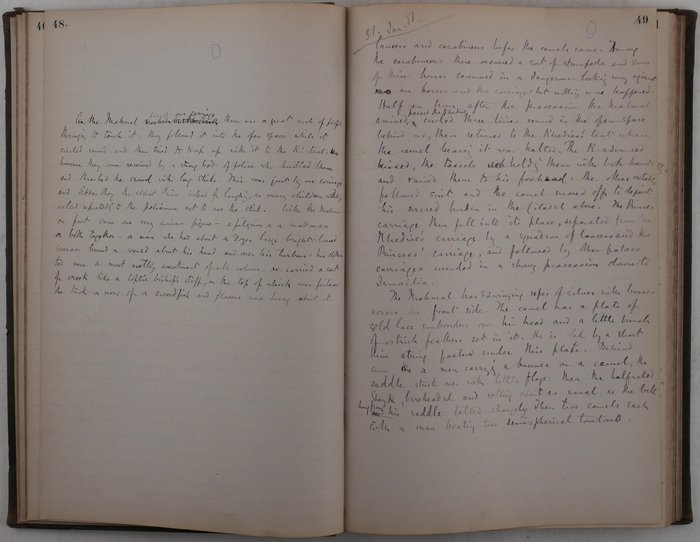 48.
As the Mahmal there was a great rush of people
through to touch it. They followed it into the open space while it
circled round and then tried to keep up with it to the Khi. tent
however they were received by a strong body of police who hustled them
and thrashed the crowd with long sticks. This was just by our carriage
and Abbas Bey the eldest Prince instead of laughing, as many children would,
called repeatedly to the policemen not to use the stick. With the Mahmal
on foot came one very curious figure - a pilgrim or a madman
or both together - a man who had about a dozen large bright coloured
scarves bound round about his head and over his turban: his clothes
too were a most motley assortment of all colours. He carried a sort
of crook like a Coptic bishop's staff, on the top of which was fastened
the nose of a swordfish and flowers were hung about it
49
31. Jan. 81.
lancers and carabineers before the camels came. Among
the carabineers there occurred a sort of stampede and some
of their horses careered in a dangerous looking way against
our horses and the carriage but nothing was happened.
Half an hour after the procession the Mahmal
arrived, circled three times round in the open space
behind us, then returned to the Khedivial tent where
the camel bearing it was halted. The K. advanced
kissed, the tassels holding them with both hands
and raised them to his forehead. The other notables
followed suit and the camel moved off to deposit
his sacred burden in the Citadel above. The Princes
carriage then fell into its place, separated from the
Khedive's carriage by a squadron of lancers and the
Princess' carriage, and followed by other palace
carriages wended in a strong procession down to
Ismailia.
The Mahmal has 3 swinging ropes of silver with bosses
across the front side. The camel has a plate of
gold lace embroidery over his head and a little bunch
of ostrich feathers set in it. He is led by a short
thin string fastened under this plate. Behind
came a man carrying a banner on a camel, the
saddle stuck over with little flags. Then the half naked
Sheykh, bareheaded and rolling about as usual as the bell
hung from his saddle tolled sharply. Then two camels each
with a man beating two semispherical tomtoms.